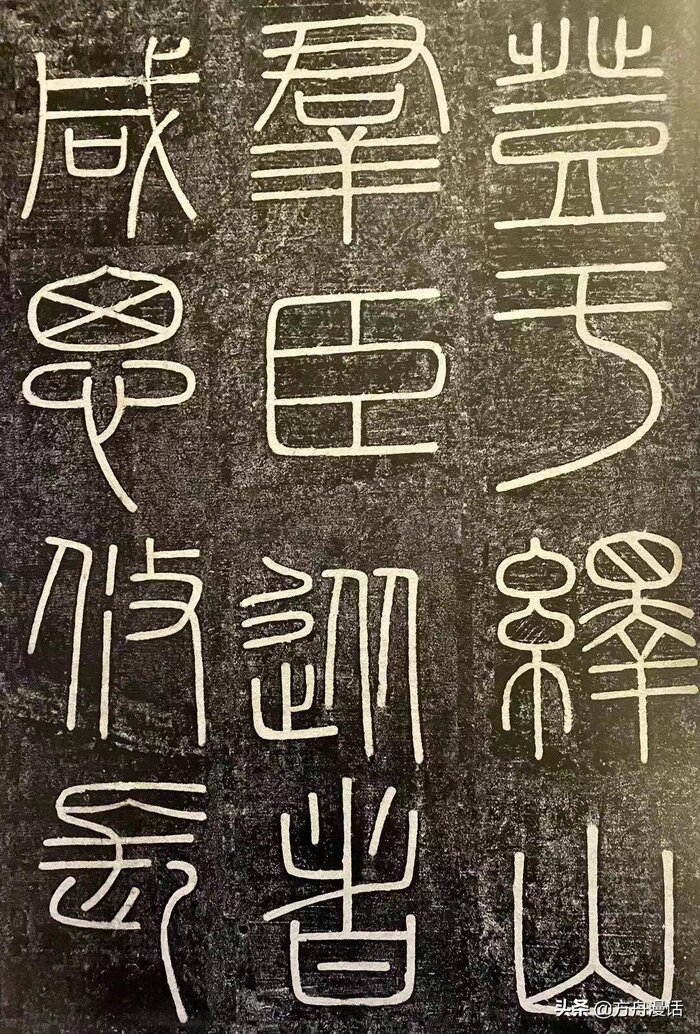 登于繹山
羣臣從者
咸思攸長
头条 @方舟漫话